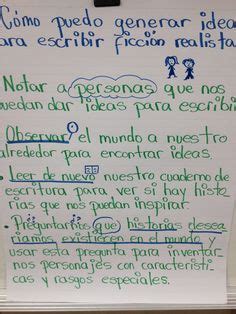 ¿Cómo puedo generar idea
ara escribir ficción realista
Notar a personas que nos
uedan dar ideas para escribi
Observar el mundo a nuestro
alrededor para encontrar ideas.
• Leer de nuevo nuestro cuaderno de
escritura para ver si hay histo
rias que nos puedan inspirar.
• Preguntarnos que historias desea
ríamos existiecen en el mundo y
usar esta pregunta para inventar
nos personajes con característi
cas y rasgos especiales.